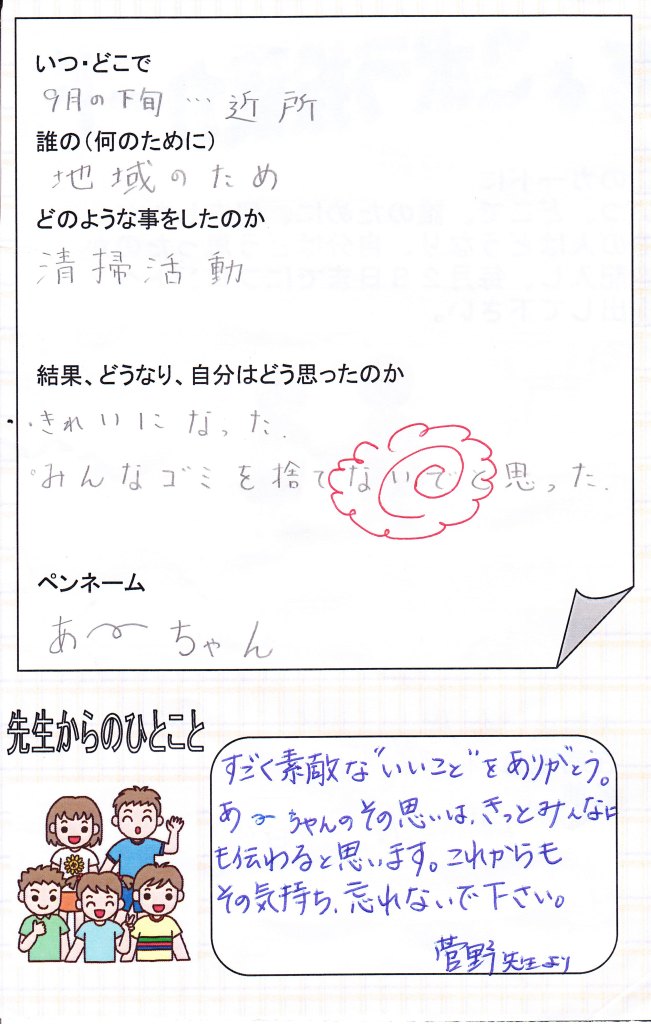 いつ・どこで
9月の下旬…近所
誰の(何のために)
地域のため
どのような事をしたのか
清掃活動
結果、どうなり、自分はどう思ったのか
・きれいになった.
・みんなゴミを捨てないでと思った.
ペンネーム
あ～ちゃん
先生からのひとこと
すごく素敵な"いいこと"をありがとう。
あ～ちゃんのその思いは、きっとみんなに
も伝わると思います。これからも
その気持ち、忘れないで下さい。
菅野先生より